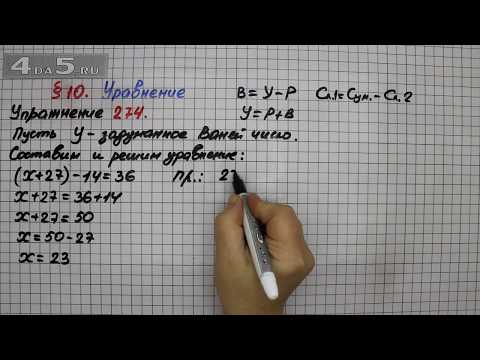 4DA5.RU
§10. Уравнение
В = У - Р Сл.1 = Сум. - Сл.2
Упражнение 274. У = Р + В
Пусть У - задуманное Ваней число.
Составим и решим уравнение:
(х+27) - 14 = 36 пр.: 2
х + 27 = 36 + 14
х + 27 = 50
х = 50 - 27
х = 23